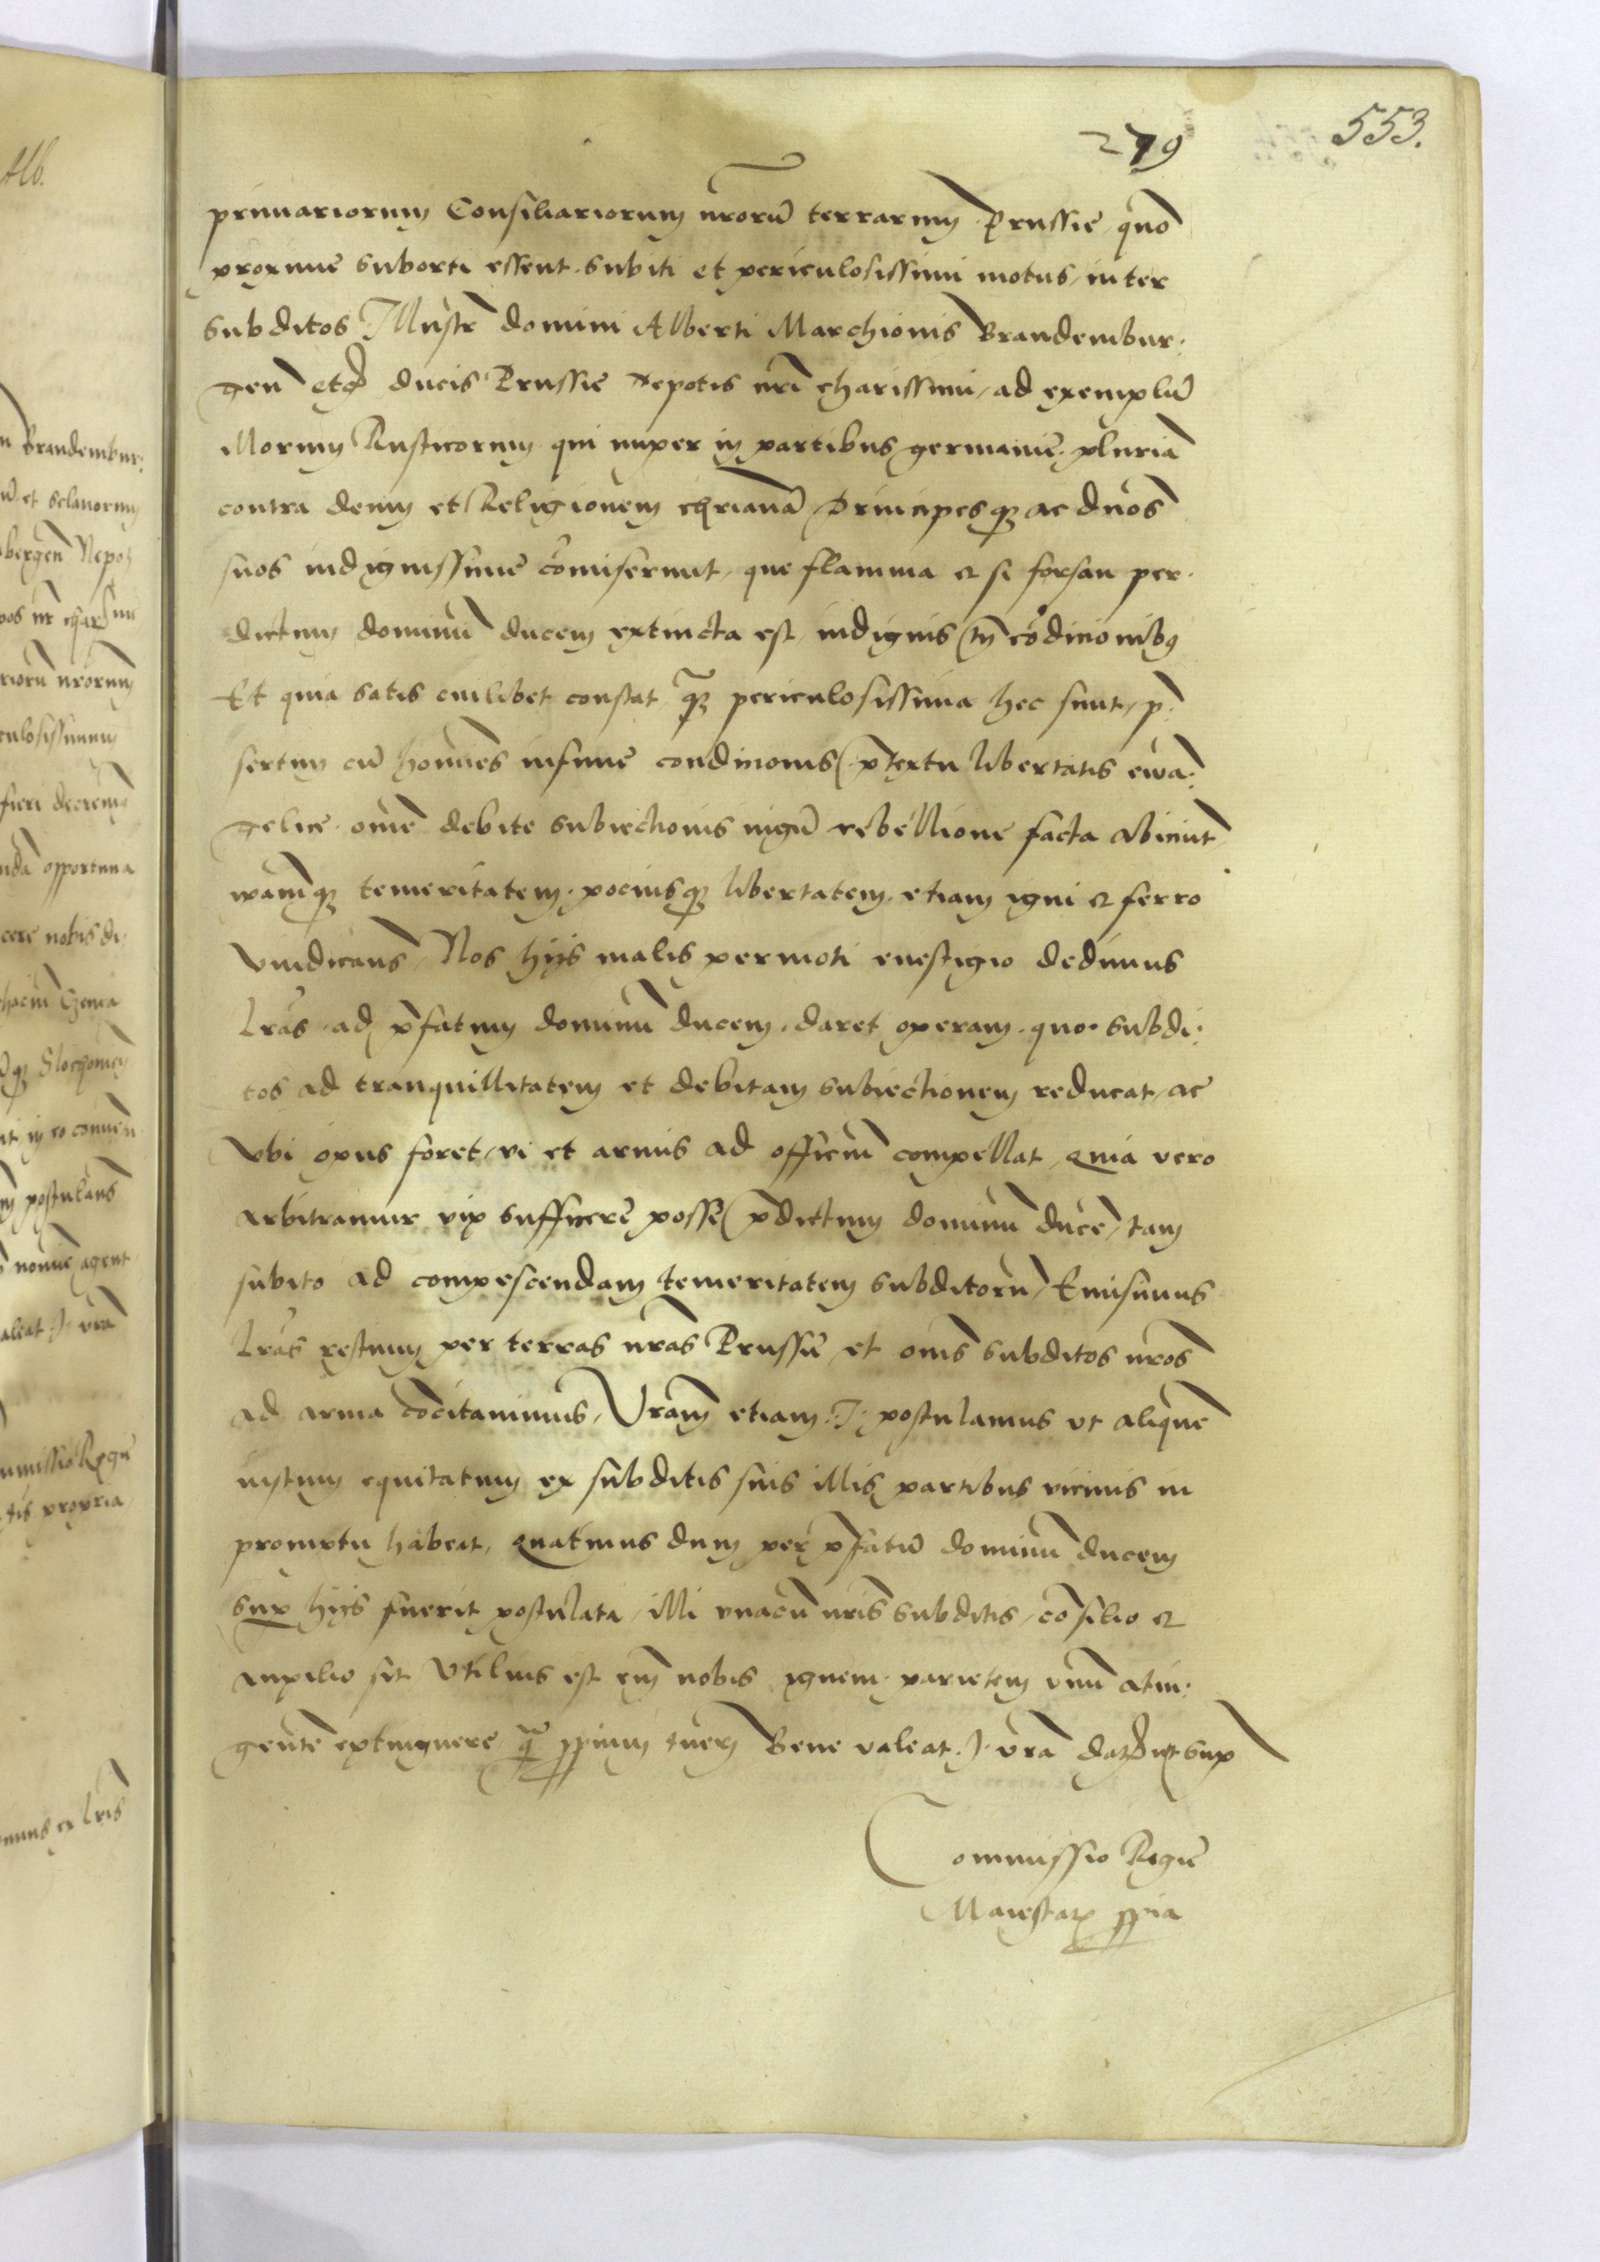 279
553.
primariorum Consiliariorum nrorū terrarum Prussie quō
proxime suborti essent subiti et periculosissimi motus, inter
subditos Illustr̄ domini Alberti Marchionis Brandembur:
gen̄ etc̄ ducis Prussie Nepotis nrī charissimi, ad exemplū
illorum Rusticorum qui nuper in partibus germanie pluriā
contra deum et Religionem chrīanā Principesq3 ac dn̄os
suos indignissime cōmiserunt, que flamma et si forsan per
dictum dominū ducem extincta est, indignis tn̄ cōdicionib9
Et quia satis cuilibet constat q̃3 periculosissima hec sunt, p̄
sertim cū homines infime condicionis p̄textu libertatis ewa:
gelice omē debite subiectionis iugū rebellione facta abiciūt
vanāq3 temeritatem pociusq3 libertatem etiam igni et ferro
vindicans, Nos hijs malis permoti evestigio dedimus
lrās ad p̄fatum dominū ducem daret operam quo subdi:
tos ad tranquillitatem et debitam subiectionem reducat, ac
vbi opus foret, vi et armis ad officiū compellat, Quia vero
arbitramur vix sufficere posse p̄dictum dominū ducē, tam
subito ad compescendam temeritatem subditorū, Emisimus
lrās restium per terras nrās Prussie et om̄s subditos nrōs
ad arma cōcitauimus, Vrām etiam .J. postulamus vt aliquē
iustum equitatum ex subditis suis illis partibus vicinis in
promptu habeat, quatinus dum per p̄fatū dominū ducem
sup hijs fuerit postulata, illi vnacū nrīs subditis, cōsilio et
auxilio sit Vtilius est em̄ nobis ignem parietem vnū atin:
gentē extinguere q̃ ppinum tueri Bene valeat .J. vrā dat̄ vt sup
Commissio Regie
Maiestatis ppria